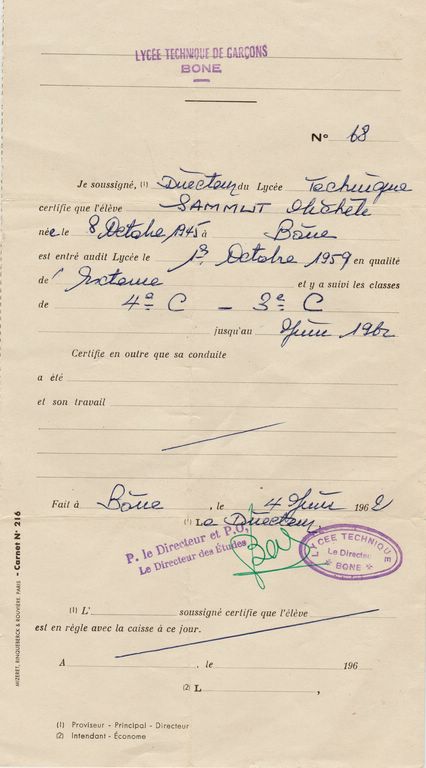 LYCÉE TECHNIQUE DE GARÇONS
BONE
N° 68
Je soussigné, (1) Directeur du Lycée Technique
certifie que l'élève SAMMUT Michèle
née le 8 Octobre 1945 à Bône
est entré audit Lycée le 1er Octobre 1959 en qualité
de Externe et y a suivi les classes
de 4e C - 3e C
jusqu'au Juin 1962
Certifie en outre que sa conduite
a été
et son travail
Fait à Bône, le 4 Juin 1962
(1) Le Directeur,
P. le Directeur et P.O.
Le Directeur des Études
LYCEE TECHNIQUE
Le Directeur
* BONE *
(1) L' soussigné certifie que l'élève
est en règle avec la caisse à ce jour.
A , le 196
(2) L ,
(1) Proviseur - Principal - Directeur
(2) Intendant - Économe
MIZERET, RINQUEBERCK & ROUVIÈRE. PARIS - Carnet N° 216